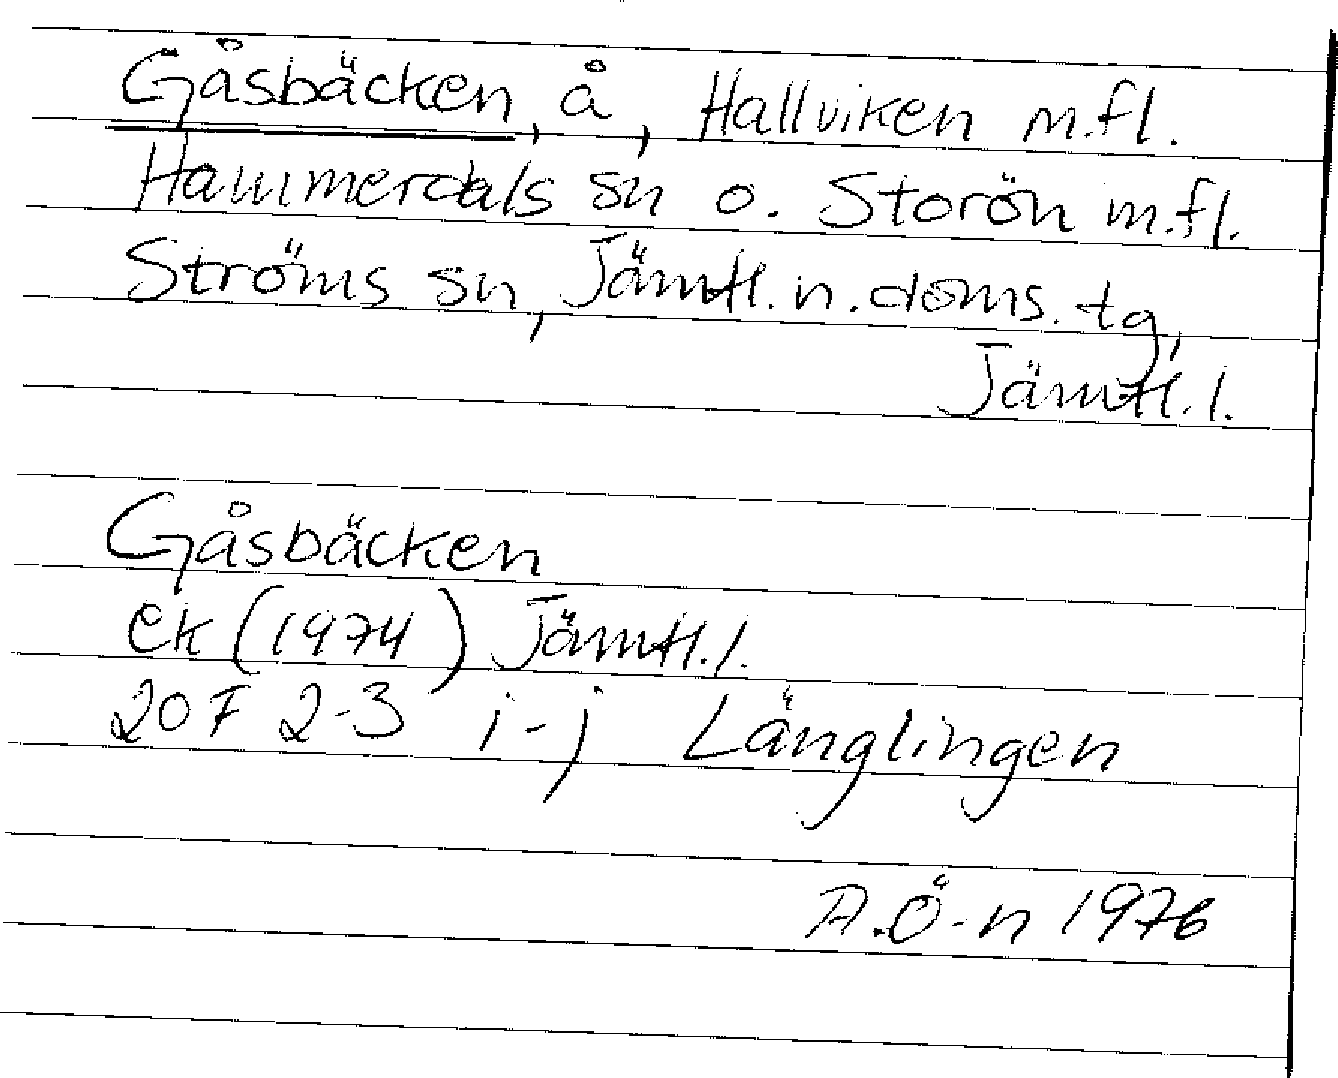 Gåsbäcken, å, Hallviken m.fl.
Hammerdals sn o. Storön m.fl.
Ströms sn, Jämtl. n. doms. tg,
Jämtl. l.
Gåsbäcken
ek (1974) Jämtl. l.
20 F 2-3 i-j Länglingen
A.Ö-n 1976